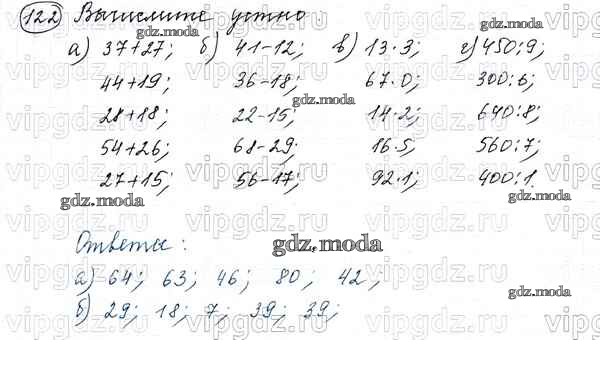 122 Вычислите устно
а) 37+27; б) 41-12; в) 13·3; г) 450:9;
44+19; 36-18; 67·0; 300:6;
gdz.moda
28+18; 22-15; 14·2; 640:8;
54+26; 68-29; 16·5; 560:7;
27+15; 56-17; 92·1; 400:1.
gdz.moda gdz.moda
Ответы: gdz.moda
а) 64; 63; 46; 80; 42;
б) 29; 18; 7; 39; 39;
gdz.moda gdz.moda
vipgdz.ru vipgdz.ru vipgdz.ru vipgdz.ru